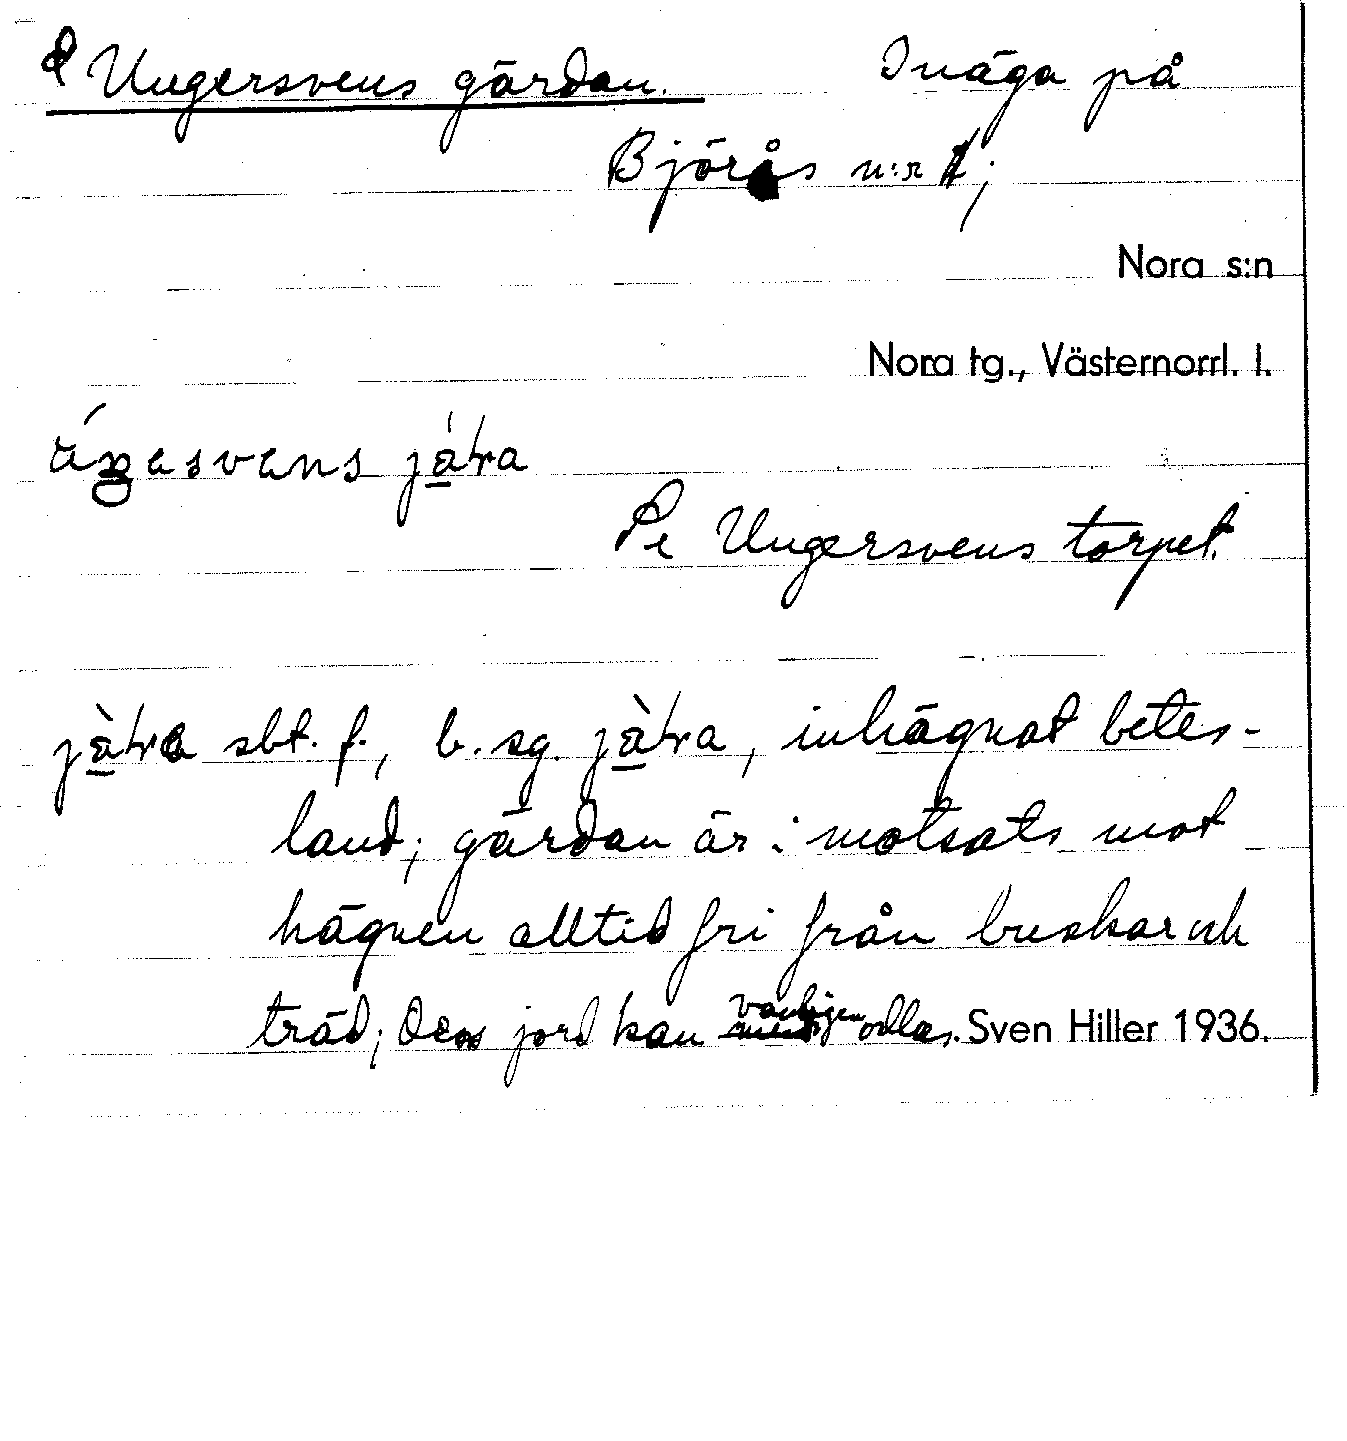 Ungersvens gärdan. Inäga på
Björås n:r 1;
Nora s:n
Nora tg., Västernorrl. l.
úŋasvens jáṭra
Se Ungersvens torpet.
jàṭra sbt. f., b. sg. jàṭra, inhägnat betes-
land; gärdan är i motsats mot
hägnen alltid fri från buskar och
träd; dess jord kan vanligen odlas. Sven Hiller 1936.